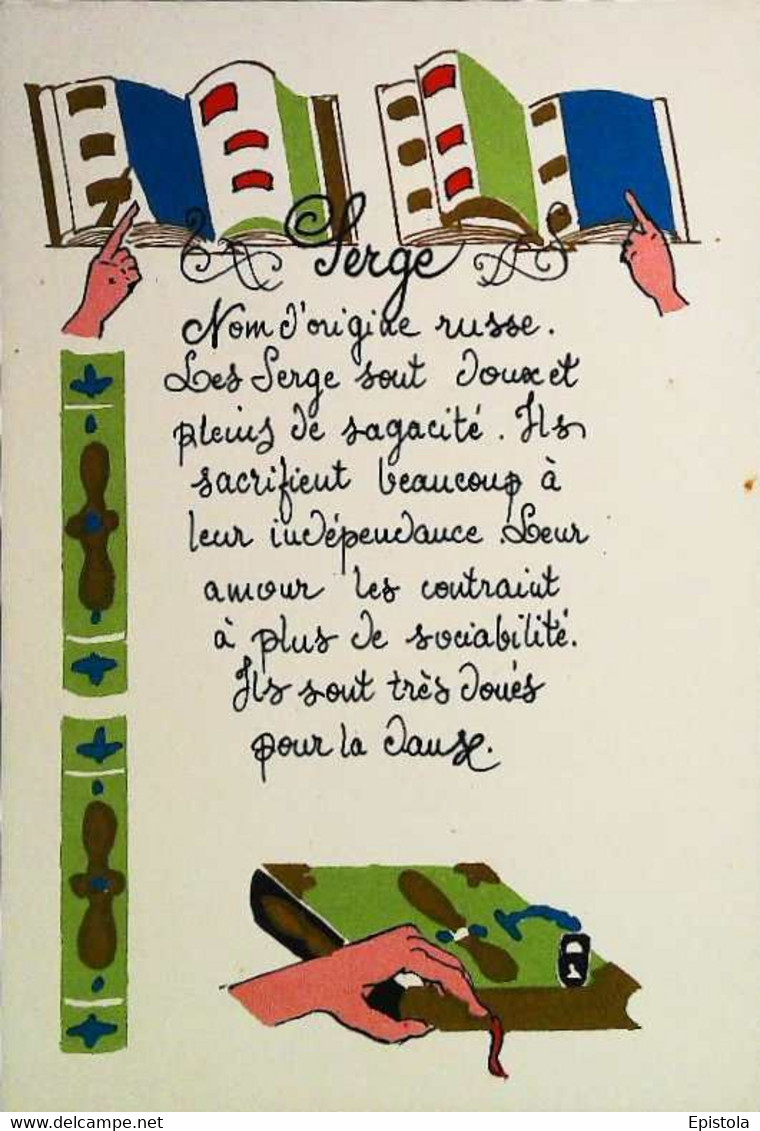 Serge
Nom d'origine russe.
Les Serge sont doux et
pleins de sagacité. Ils
sacrifient beaucoup à
leur indépendance. Leur
amour les contraint
à plus de sociabilité.
Ils sont très doués
pour la danse.
www.delcampe.net
Epistola